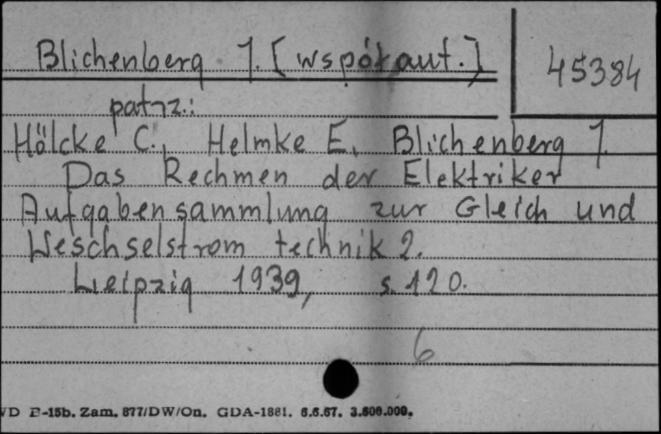 Blichenberg J. [współaut.]
45384
patrz:
Hölcke C., Helmke E, Blichenberg J.
Das Rechmen der Elektriker
Aufgabensammlung zur Gleich und
Weschselstrom technik 2.
Leipzig 1939, s. 120.
6
VD B-15b. Zam. 877/DW/On. GDA-1881. 6.6.67. 3.600.000.